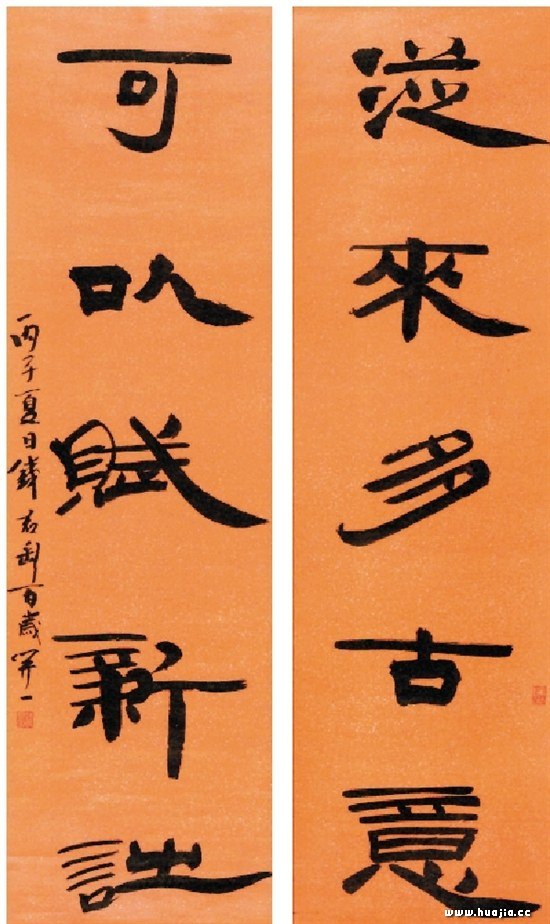 從來多古意
可以賦新詩
丙子夏日錢君匋百歲開一
www.huajia.cc